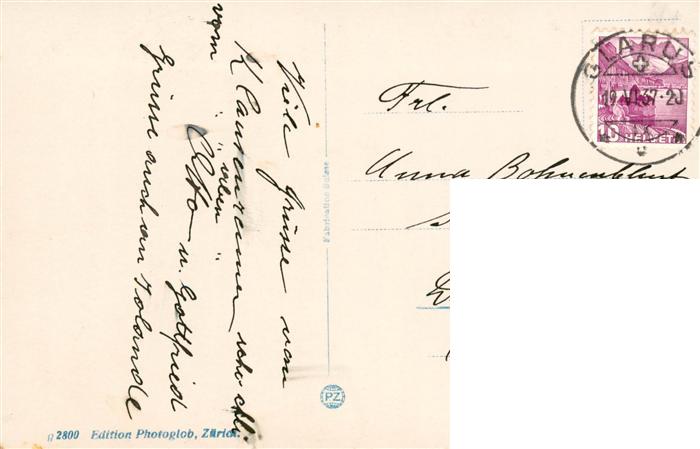 Viele Grüsse von
Klausenrenner scho chli
vom "üben"
Otto u. Gottfried
Grüsse auch an Jolande
Fabrication Suisse
PZ
g 2800 Edition Photoglob, Zürich.
GLARUS
19.VI.37-20
10 HELVETIA
Frl.
Anna Bohnenblust